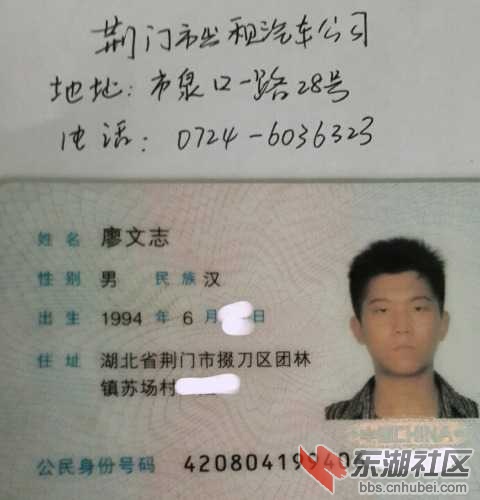 荆门市出租汽车公司
地址:市泉口一路28号
电话:0724-6036323
姓名 廖文志
性别 男 民族 汉
出生 1994 年 6 月 日
住址 湖北省荆门市掇刀区团林
镇苏场村
公民身份号码 42080419940
CHINA
东湖社区
bbs.cnhubei.com